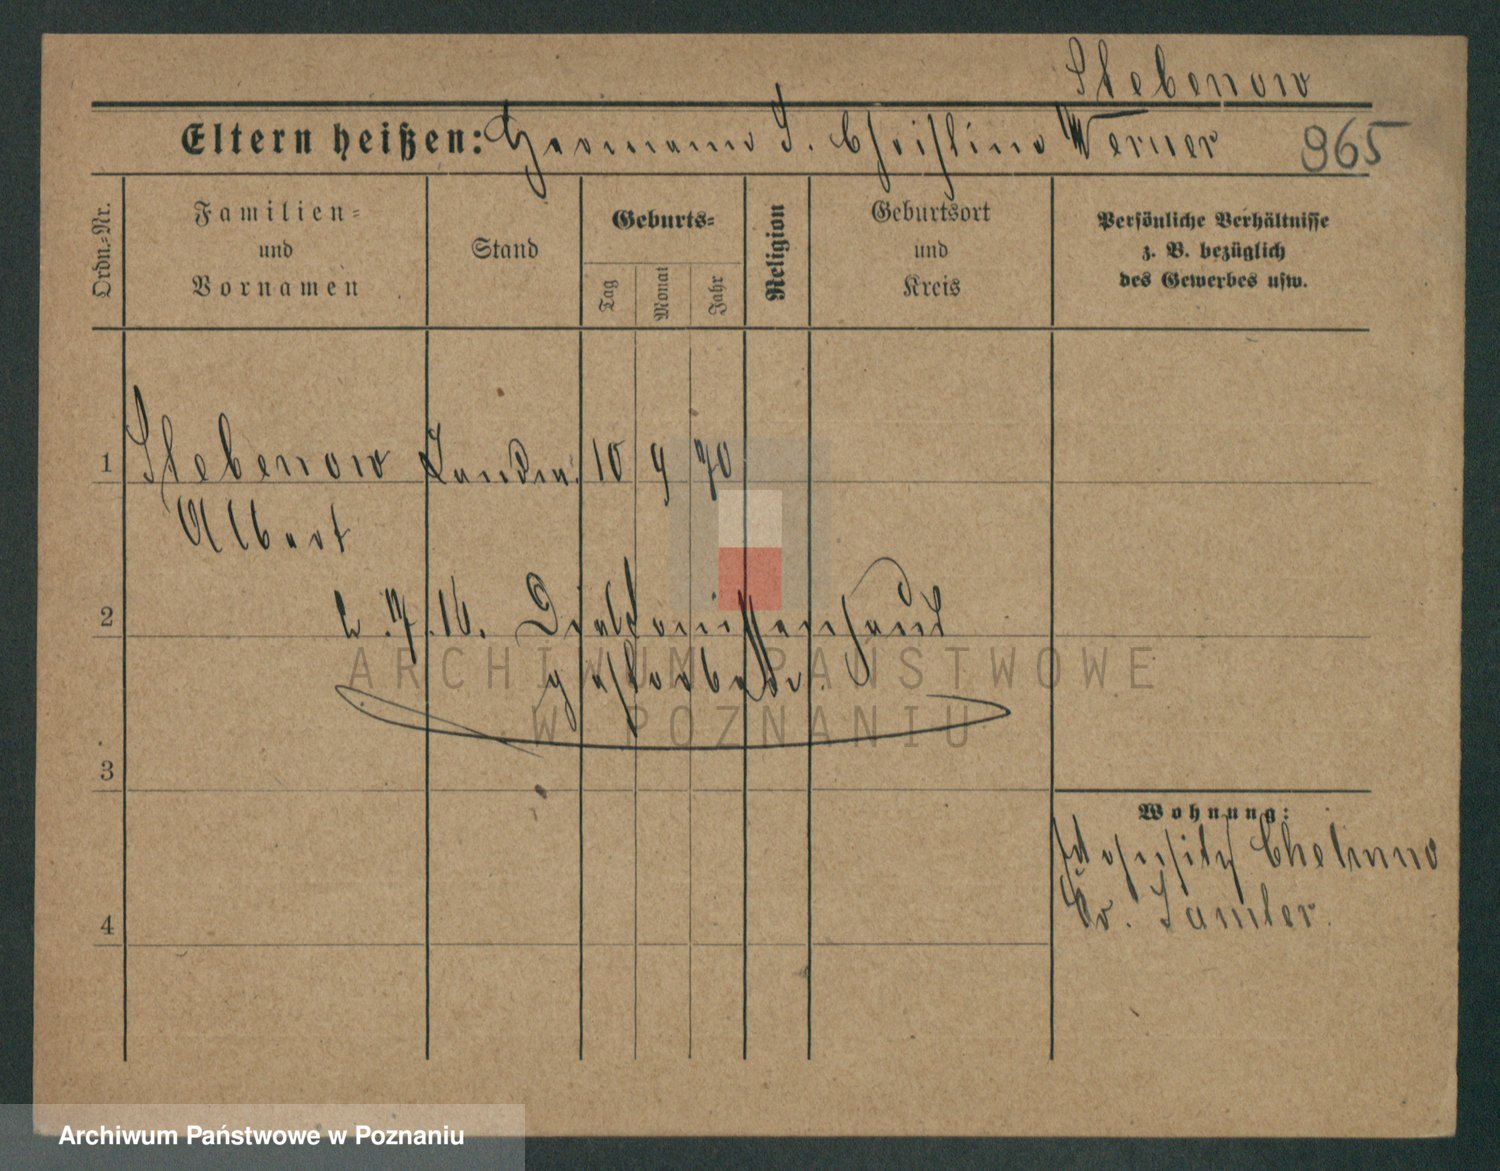 Stebenow
Eltern heißen: Hermann S. Christine Werner 965
Ordn.-Nr.
Familien-
und
Vornamen
Stand
Geburts-
Tag
Monat
Jahr
Religion
Geburtsort
und
Kreis
Persönliche Verhältnisse
z. B. bezüglich
des Gewerbes usw.
1 Stebenow 10 9 70
Albert
2 2.7.16. Diakonissenhaus
gestorben.
3
4
Wohnung:
Chelmno
Kr. Samter.
ARCHIWUM PAŃSTWOWE
W POZNANIU
Archiwum Państwowe w Poznaniu